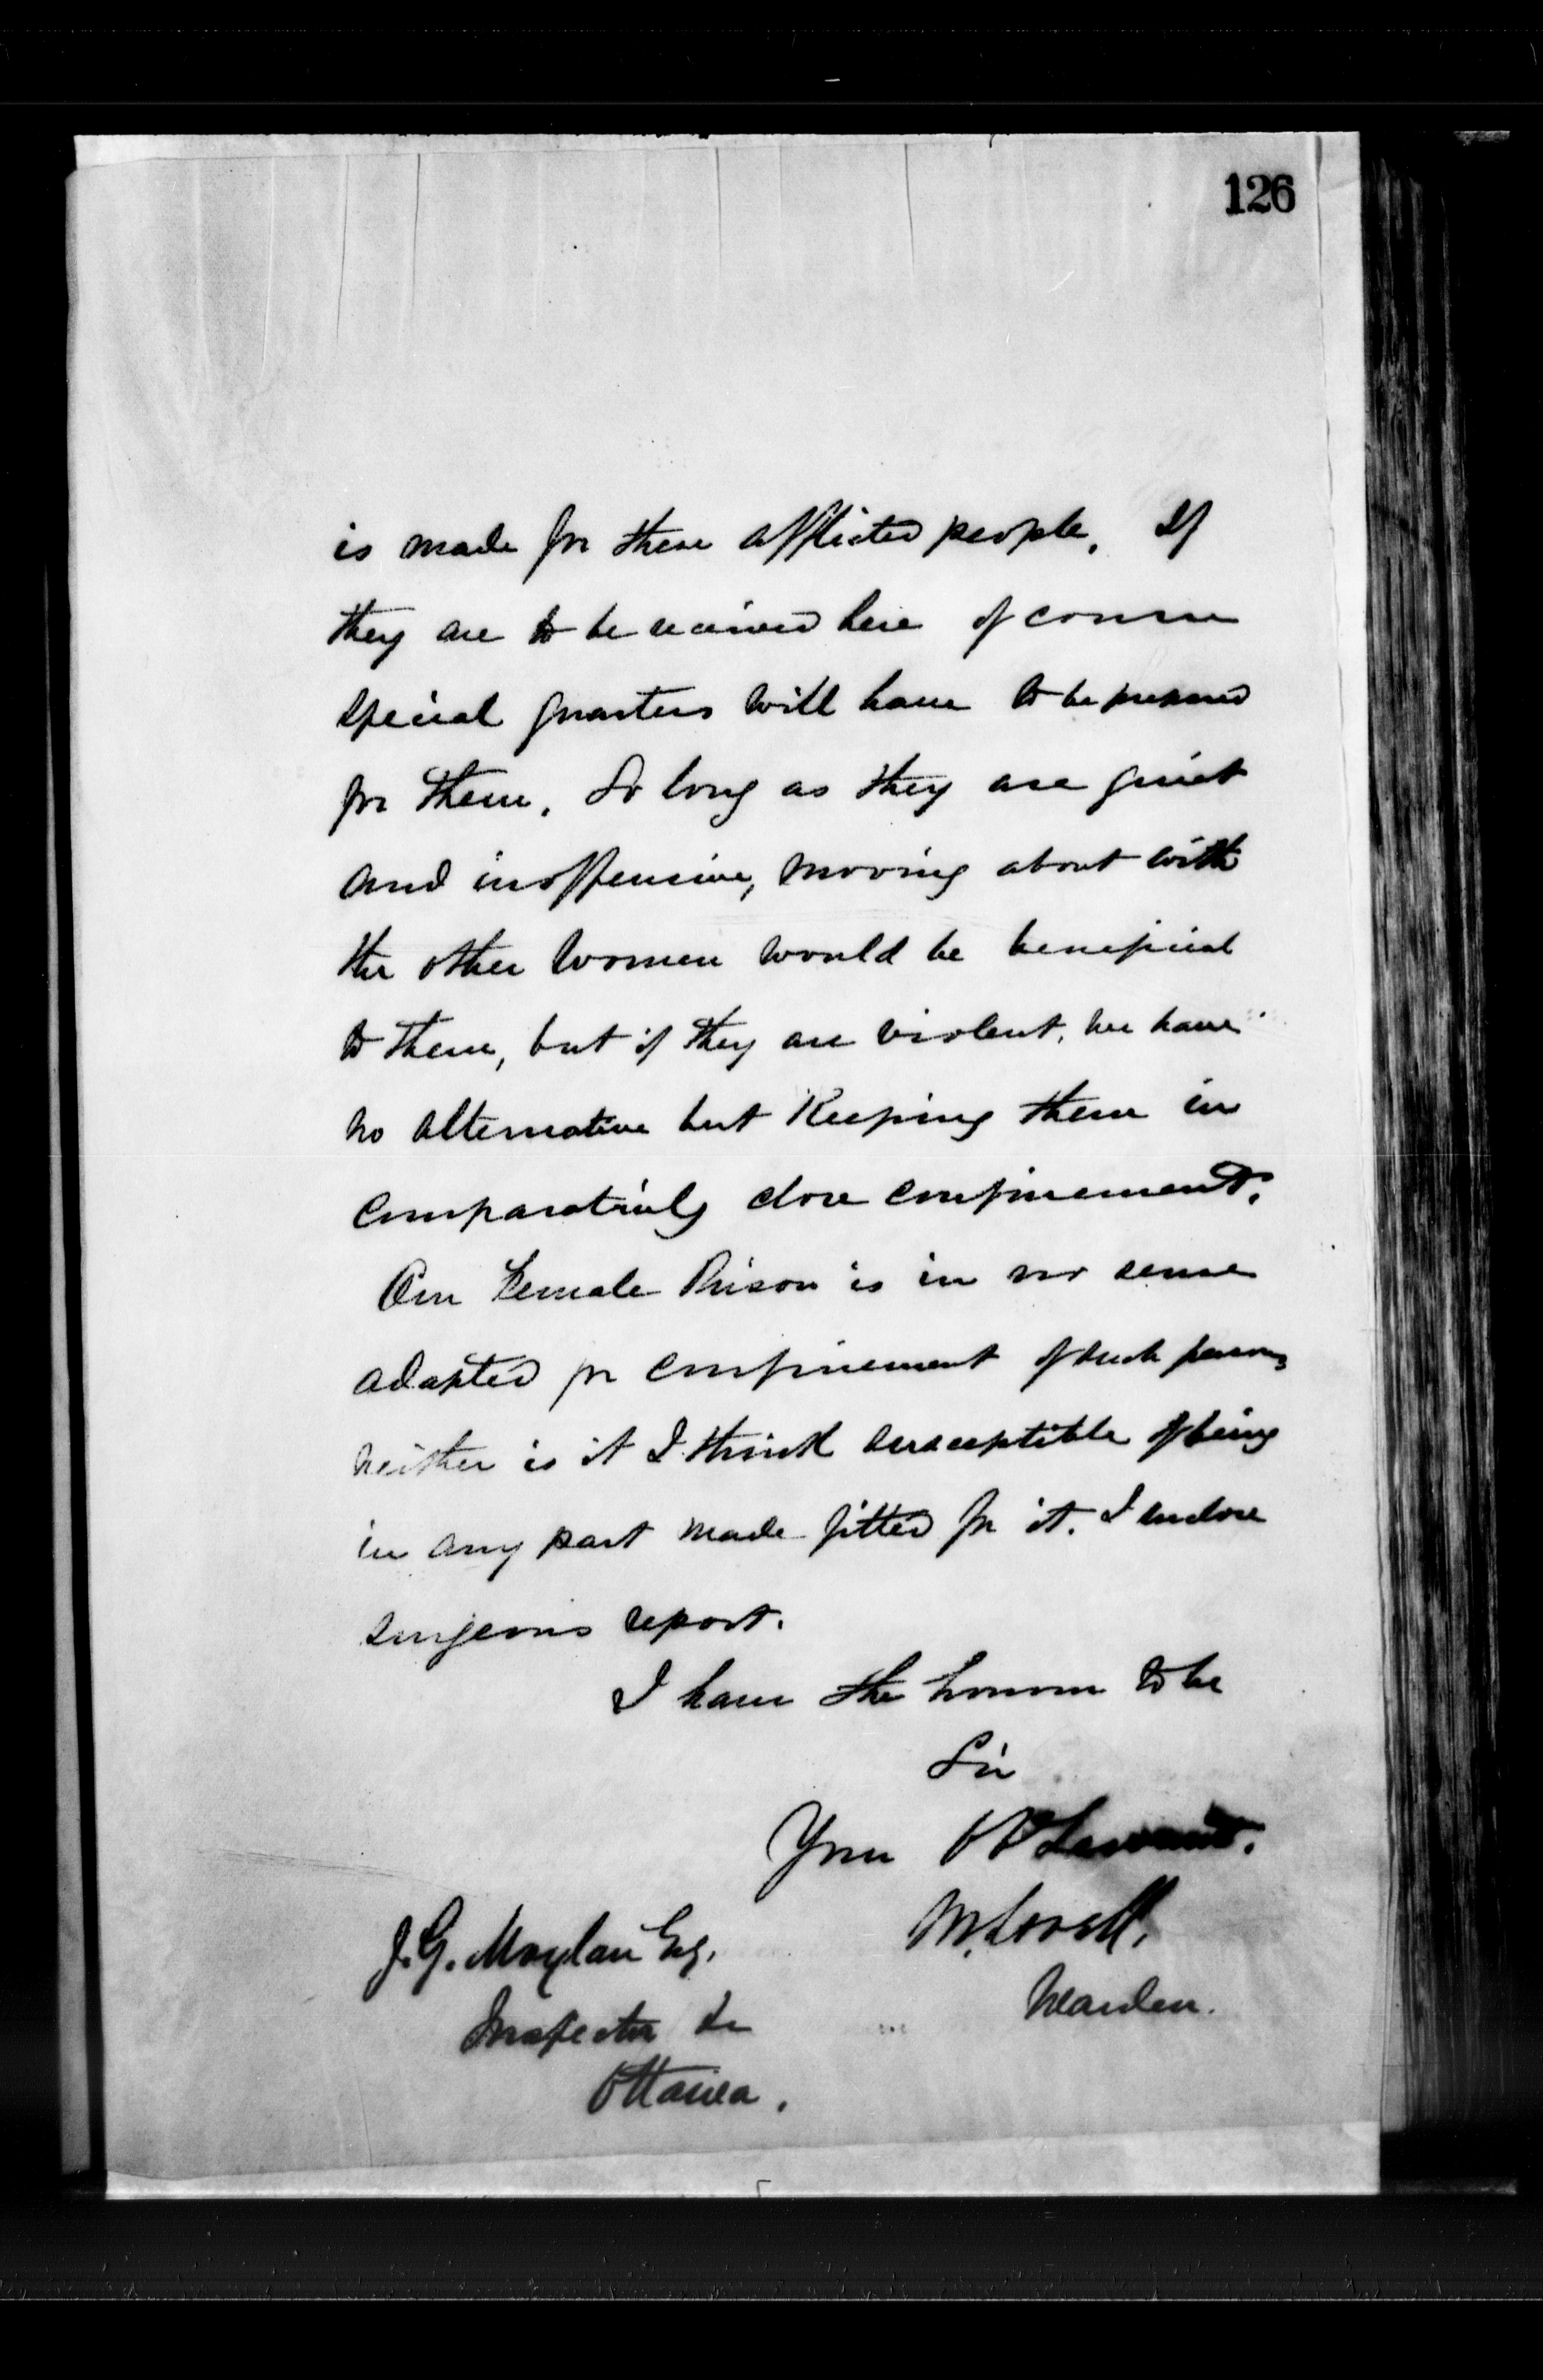 126
is made for these afflicted people. If
they are to be received here of course
special quarters will have to be prepared
for them. So long as they are quiet
and inoffensive, moving about with
the other women would be beneficial
to them, but if they are violent, we have
no alternative but Keeping them in
comparatively close confinement.
Our Female Prison is in no sense
adapted for confinement of such persons
neither is it I think susceptible of being
in any part made fitted for it. I enclose
surgeons report.
I have the honour to be
Sir
Your Ob Servant.
M. Lavell,
Warden.
J. G. Moylan Esq.
Inspector &c
Ottawa.